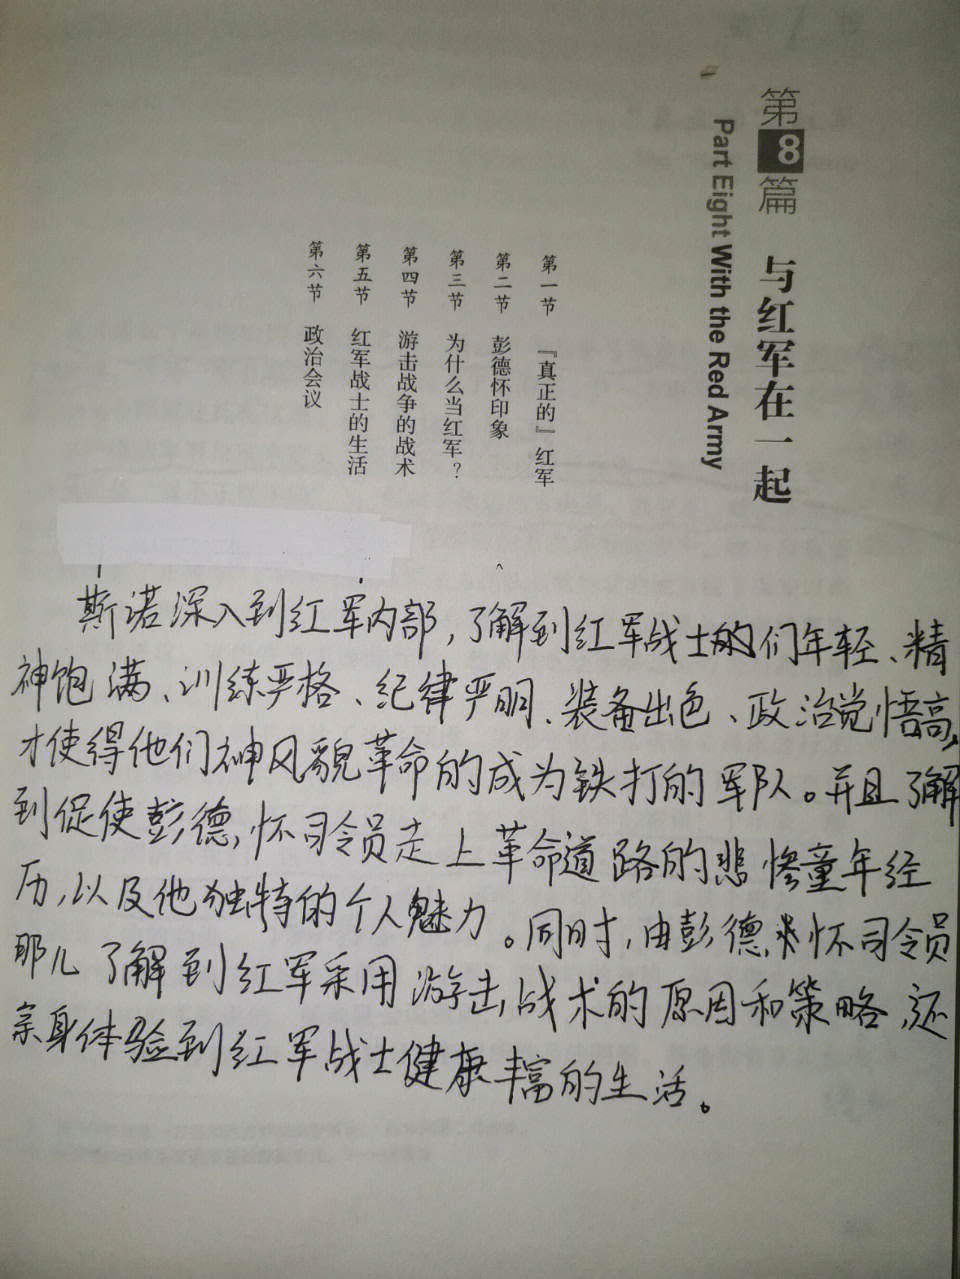 第8篇 与红军在一起
Part Eight With the Red Army
第一节 『真正的』红军
第二节 彭德怀印象
第三节 为什么当红军?
第四节 游击战争的战术
第五节 红军战士的生活
第六节 政治会议
斯诺深入到红军内部,了解到红军战士的们年轻、精
神饱满、训练严格、纪律严明、装备出色、政治觉悟高,
才使得他们神风貌革命的成为铁打的军队。并且了解
到促使彭德,怀司令员走上革命道路的悲惨童年经
历,以及他独特的个人魅力。同时,由彭德怀司令员
那儿了解到红军采用游击战术的原因和策略,还
亲身体验到红军战士健康丰富的生活。